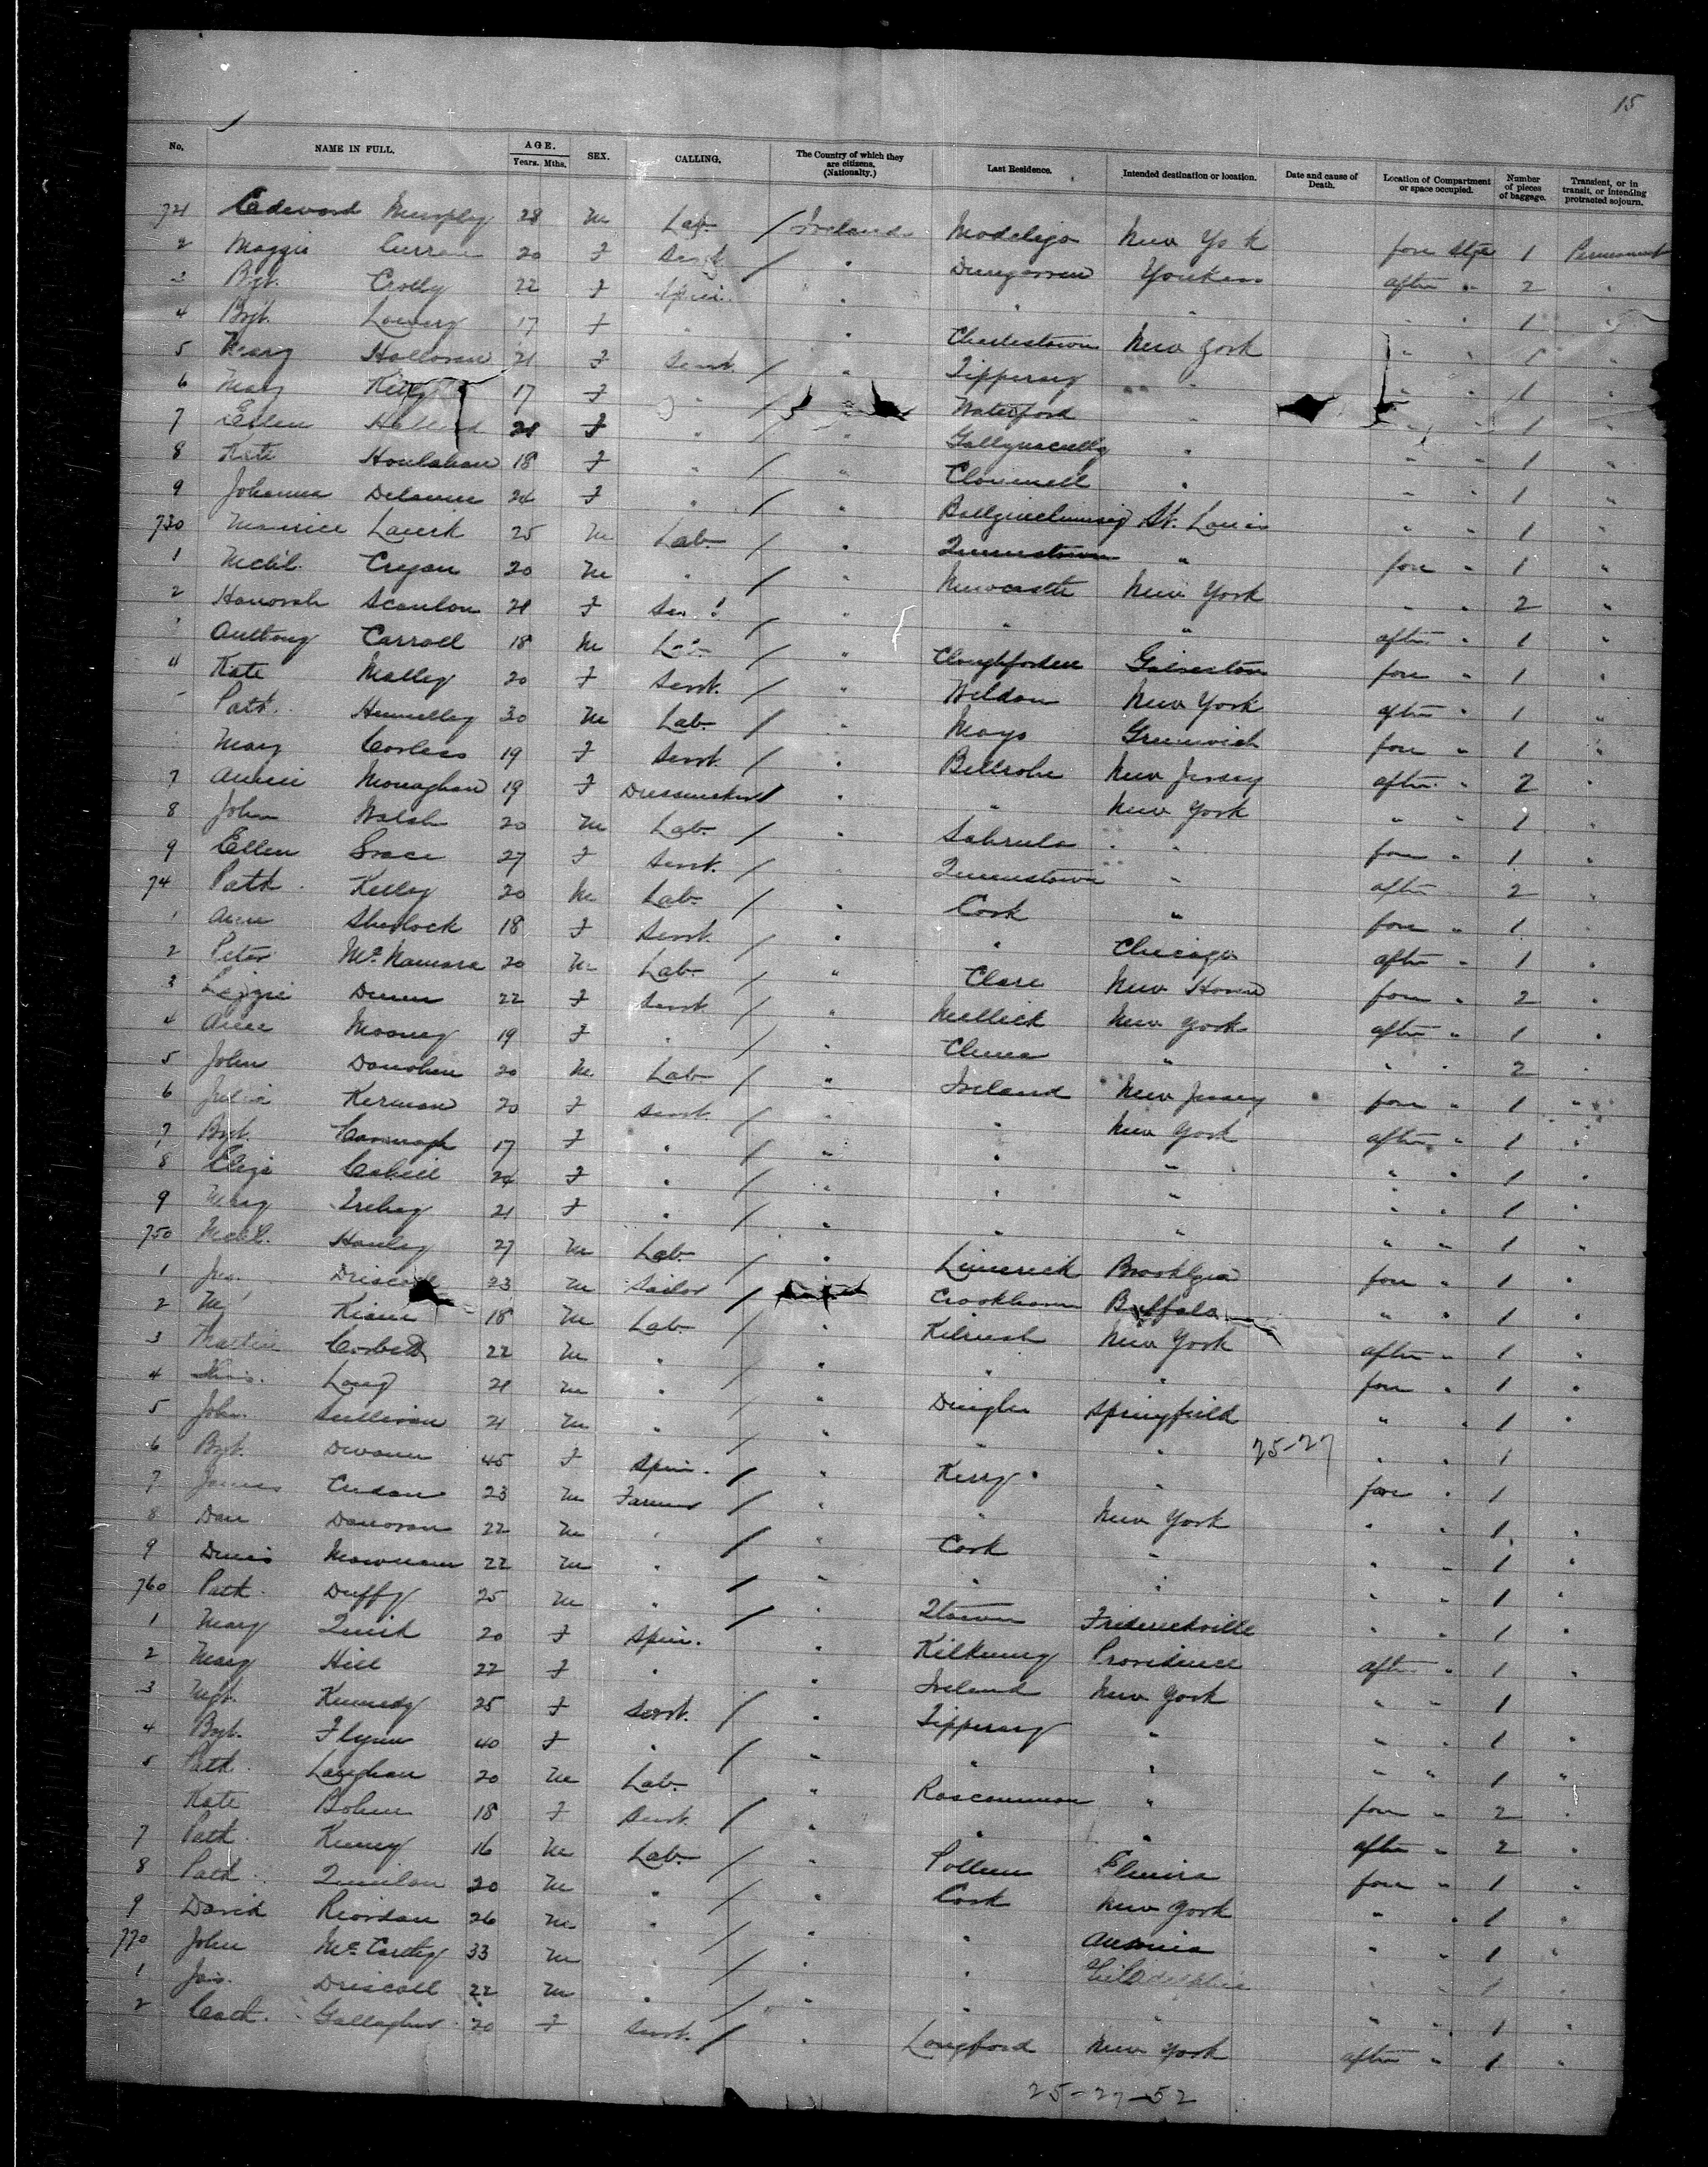 15
No. NAME IN FULL. AGE. Years. Mths. SEX. CALLING. The Country of which they are citizens. (Nationality.) Last Residence. Intended destination or location. Date and cause of Death. Location of Compartment or space occupied. Number of pieces of baggage. Transient, or in transit, or intending protracted sojourn.
721 Edward Murphy 28 M Lab. / Ireland Modeligo New York fore stge 1 Permanent
2 Maggie Curran 20 F Servt / " Dungarvan Yonkers after " 2 "
3 Bgt. Crotty 22 F Spin. " " " " " 1 "
4 Bgt. Lowery 17 F " " Charlestown New York " " 1 "
5 Mary Halloran 21 F Servt. / " Tipperary " " " 1 "
6 Mary Kelly 17 F " / " Waterford " " " 1 "
7 Ellen 21 F " / " " " " 1 "
8 Kate Houlahan 18 F " / " Clonmell " " " 1 "
9 Johanna 24 F " / " St. Louis " " 1 "
730 Maurice 25 M Lab. / " Queenstown " fore " 1 "
1 Michl. Cregan 20 M " / " Newcastle New York " " 2 "
2 Honorah Scanlon 21 F / " " " after " 1 "
Anthony Carroll 18 M Lab. / " Galveston fore " 1 "
4 Kate Malley 20 F Servt. / " Weldon New York after " 1 "
Patk. 30 M Lab. / " Mayo Greenwich fore " 1 "
Mary Corless 19 F Servt. / " New Jersey after " 2 "
7 Annie Monaghan 19 F Dressmaker / " " New York " " 1 "
8 John Walsh 20 M Lab. / " " fore " 1 "
9 Ellen Grace 27 F Servt. / " Queenstown " after 2 "
74 Patk. Kelley 20 M Lab. / " Cork " fore " 1 "
1 Ann Sherlock 18 F Servt. / " " Chicago after " 1 "
2 Peter McNamara 20 M Lab. / " Clare New Haven fore " 2 "
3 Lizzie Dunn 22 F Servt. / " New York after " 1 "
4 Anne Mooney 19 F " / " " " " 2 "
5 John Donohue 20 M Lab / " Ireland New Jersey fore " 1 "
6 Julia Kernan 20 F Servt. / " " New York after " 1 "
7 Bgt. Cavanagh 17 F " / " " " " " 1 "
8 Eliza Cahill 24 F " / " " " " " 1 "
9 Mary 21 F " / " " " " " 1 "
750 Michl. Hanley 27 M Lab. / " Limerick Brooklyn fore " 1 "
1 Driscoll 23 M Sailor / Crookhaven Buffalo " " 1 "
2 18 M Lab. / " Kilrush New York after " 1 "
3 Martin Corbett 22 M " / " " " fore " 1 "
4 Long 21 M " / " Dingle Springfield " " 1 "
5 John Sullivan 21 M " / " " " " " 1
6 Bgt. 45 F Spin. / " Kerry " fore " 1
7 James 23 M Farmer / " " New York " " 1 "
8 Dan Donovan 22 M " / " Cork " " " 1 "
9 Denis 22 M " / " " " " " 1 "
760 Patk. Duffy 25 M " / " Qtown Frederickville " " 1 "
1 Mary Quirk 20 F Spin. " Kilkenny Providence after " 1 "
2 Mary Hill 22 F " " Ireland New York " " 1 "
3 Mgt. Kennedy 25 F Servt. / " Tipperary " " " 1 "
4 Bgt. Flynn 40 F " / " " " " " 1 "
5 Patk. 20 M Lab. / " Roscommon " fore " 2 "
Kate 18 F Servt. / " " " after " 2 "
7 Patk. Kenny 16 M Lab. / " Elmira fore " 1 "
8 Patk. Quinlan 20 M " / " Cork New York " " 1 "
9 David Riordan 26 M " / " " Ansonia " " 1 "
770 John McCarthy 33 M " / " " Philadelphia " " 1 "
1 Jas. Driscoll 22 M " / " " " " " 1 "
2 Cath. Gallagher 20 F Servt. / " Longford New York after " 1 "
25-27
25-27-52